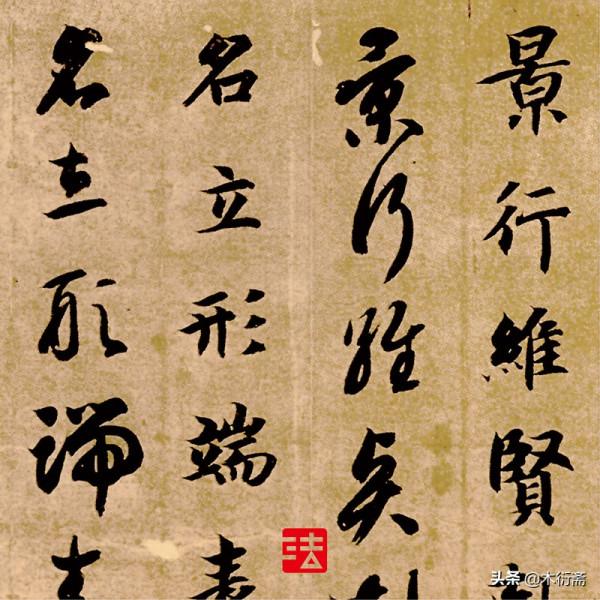 景行維賢
景行維賢
名立形端
名立形端
法
头条 @木衍斋